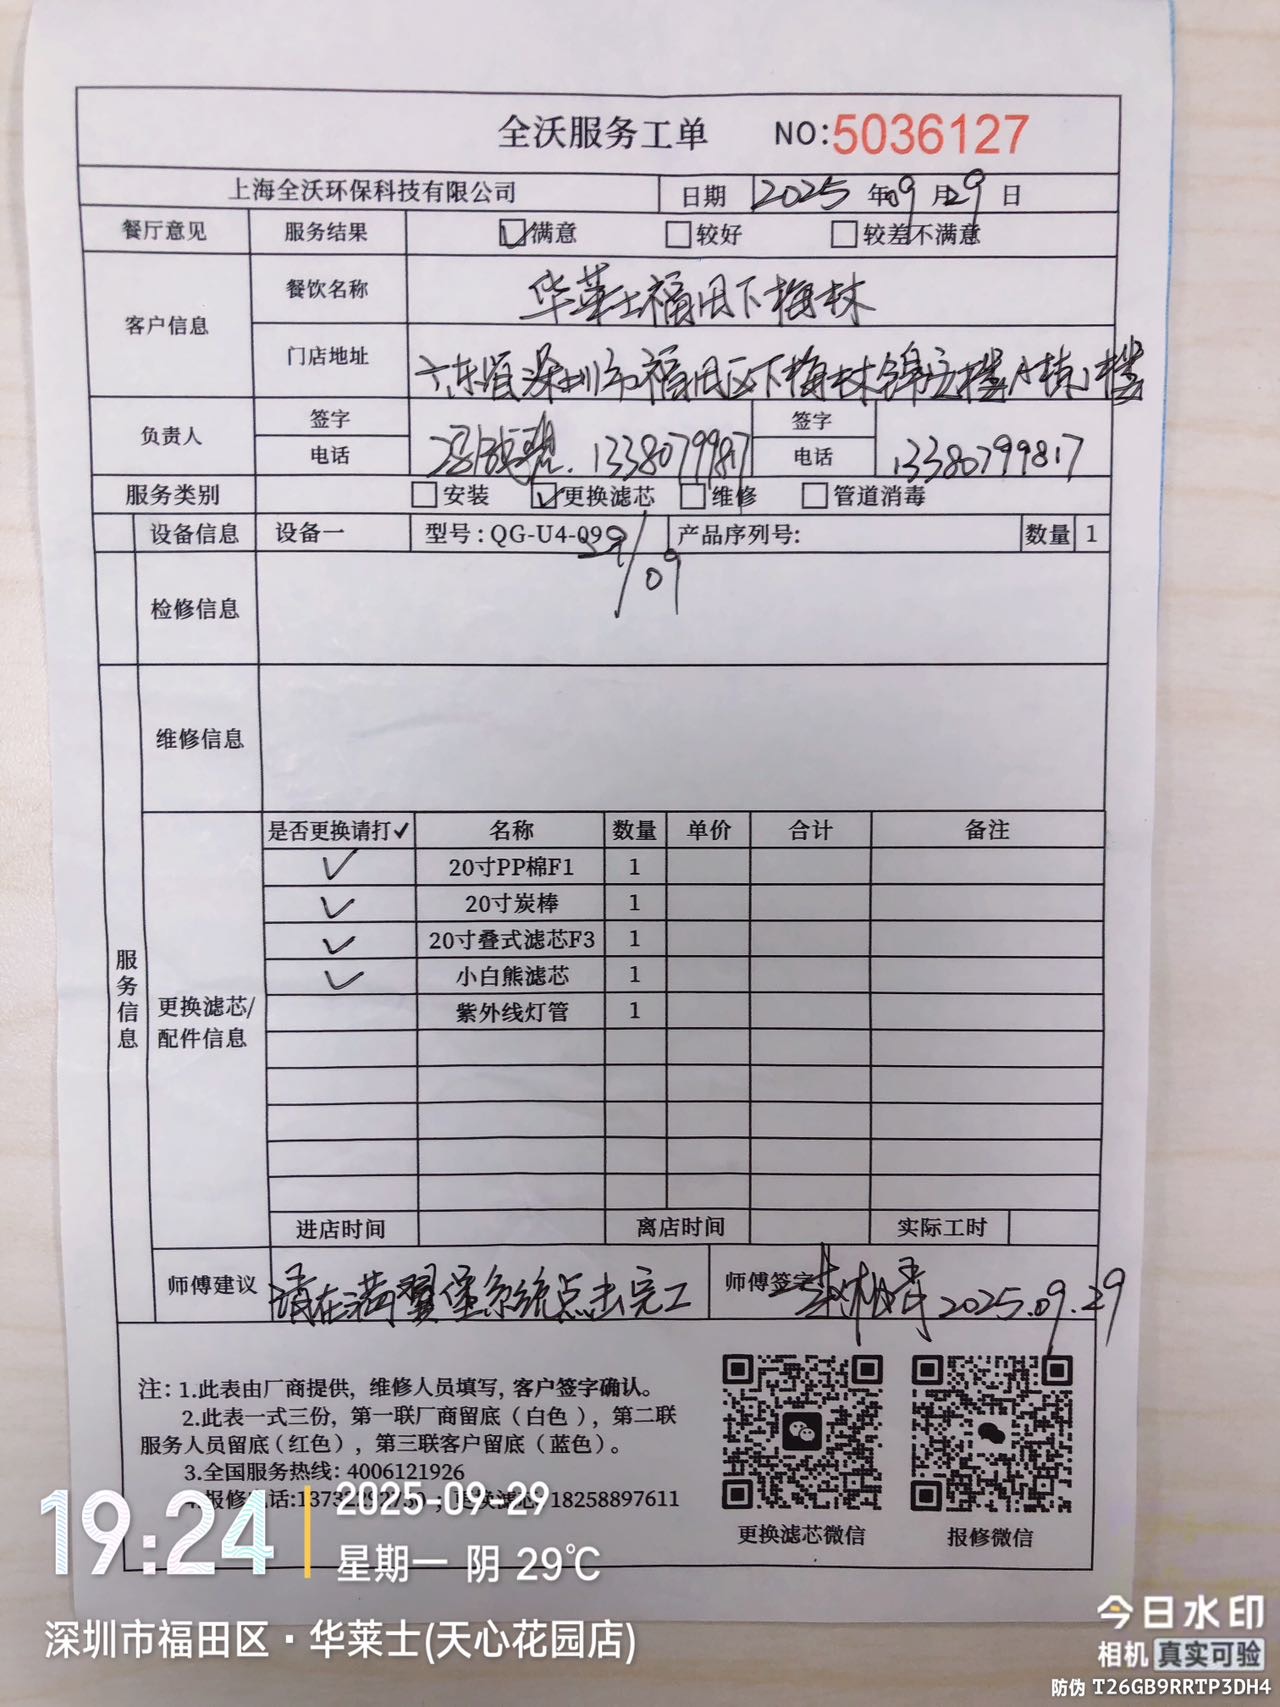 全沃服务工单 NO:5036127
上海全沃环保科技有限公司 日期 2025 年 09 月 29 日
餐厅意见 服务结果 满意 较好 较差不满意
客户信息 餐饮名称 华莱士福田下梅林
门店地址 广东省深圳市福田区下梅林锦立楼A栋1楼
负责人 签字 签字
电话 13380799817 电话 13380799817
服务类别 安装 更换滤芯 维修 管道消毒
设备信息 设备一 型号:QG-U4-09 产品序列号: 数量 1
29/09
检修信息
维修信息
服务信息
更换滤芯/配件信息
是否更换请打✓ 名称 数量 单价 合计 备注
✓ 20寸PP棉F1 1
✓ 20寸炭棒 1
✓ 20寸叠式滤芯F3 1
✓ 小白熊滤芯 1
紫外线灯管 1
进店时间 离店时间 实际工时
师傅建议 请在满翼堡系统点击完工 师傅签字 2025.09.29
注：1.此表由厂商提供，维修人员填写，客户签字确认。
2.此表一式三份，第一联厂商留底（白色），第二联
服务人员留底（红色），第三联客户留底（蓝色）。
3.全国服务热线：4006121926
4.报修电话: 更换滤芯 18258897611
更换滤芯微信 报修微信
19:24 2025-09-29
星期一 阴 29℃
深圳市福田区·华莱士(天心花园店)
今日水印
相机 真实可验
防伪 T26GB9RRTP3DH4